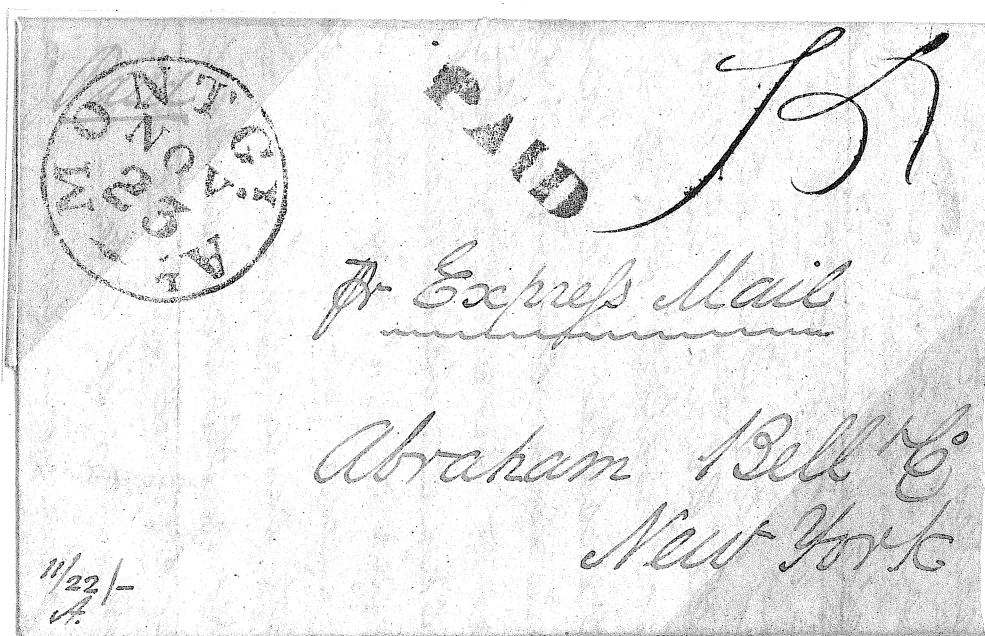 MONTGY
AL.
NOV.
23
PAID
Pr Express Mail
Abraham Bell & Co
New York
11/22/-
A.